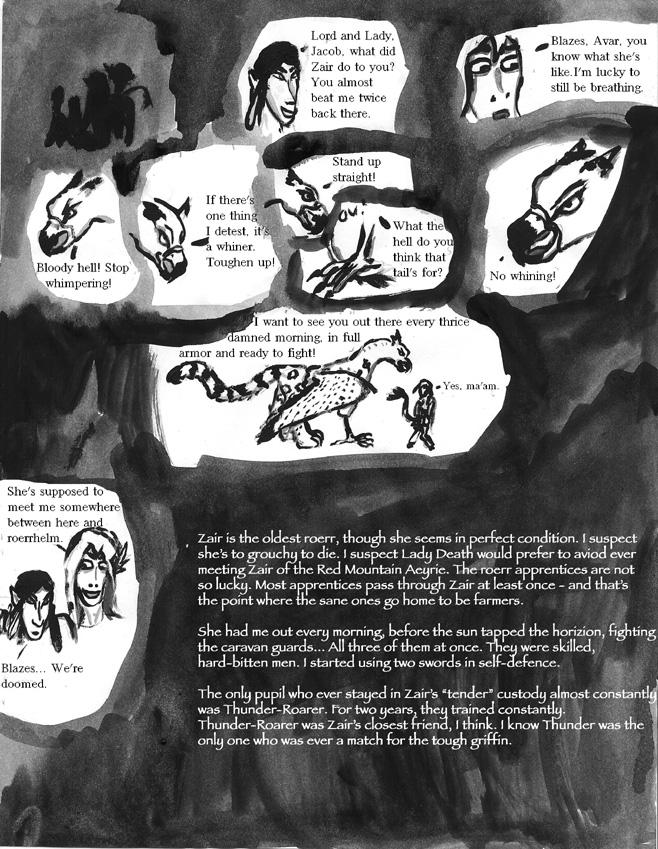 Lord and Lady,
Jacob, what did
Zair do to you?
You almost
beat me twice
back there.
Blazes, Avar, you
know what she's
like.I'm lucky to
still be breathing.
Bloody hell! Stop
whimpering!
If there's
one thing
I detest, it's
a whiner.
Toughen up!
Stand up
straight!
Ow!
What the
hell do you
think that
tail's for?
No whining!
I want to see you out there every thrice
damned morning, in full
armor and ready to fight!
Yes, ma'am.
She's supposed to
meet me somewhere
between here and
roerrhelm.
Blazes... We're
doomed.
Zair is the oldest roerr, though she seems in perfect condition. I suspect
she's to grouchy to die. I suspect Lady Death would prefer to aviod ever
meeting Zair of the Red Mountain Aeyrie. The roerr apprentices are not
so lucky. Most apprentices pass through Zair at least once - and that's
the point where the sane ones go home to be farmers.
She had me out every morning, before the sun tapped the horizion, fighting
the caravan guards... All three of them at once. They were skilled,
hard-bitten men. I started using two swords in self-defence.
The only pupil who ever stayed in Zair's "tender" custody almost constantly
was Thunder-Roarer. For two years, they trained constantly.
Thunder-Roarer was Zair's closest friend, I think. I know Thunder was the
only one who was ever a match for the tough griffin.